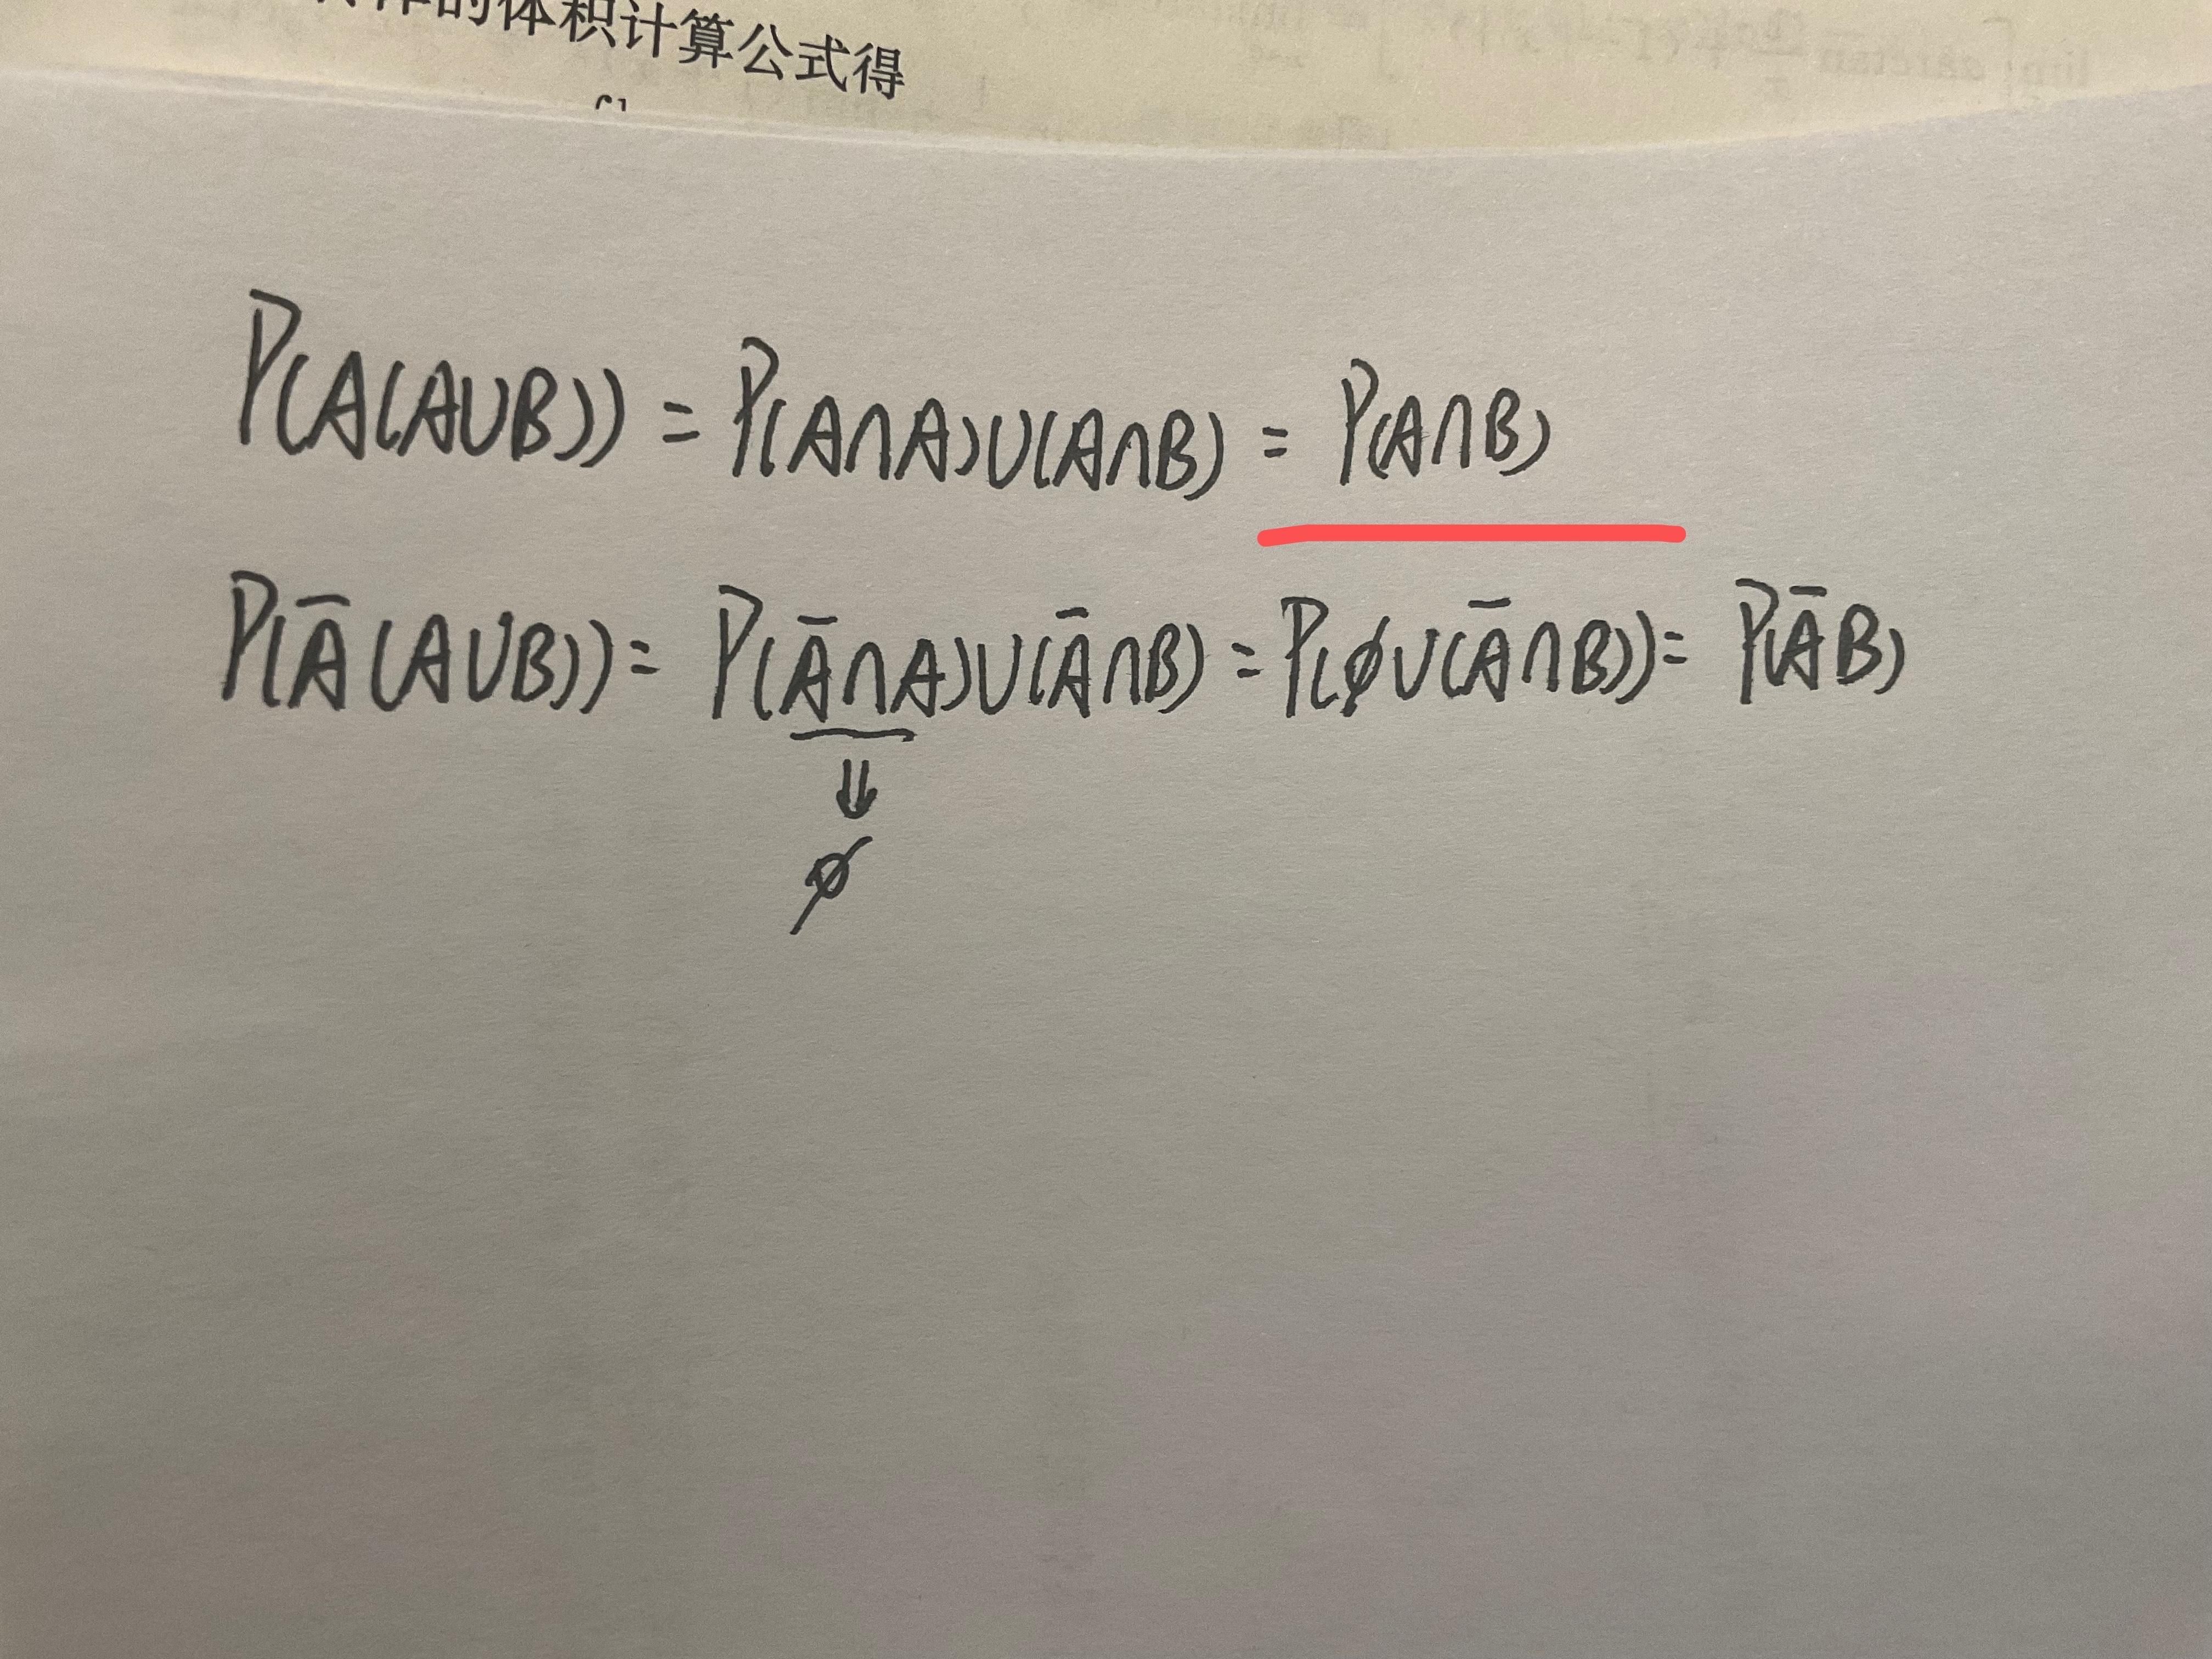 的体积计算公式得
P(A(A∪B)) = P(A∩A)∪(A∩B) = P(A∩B)
P(Ā(A∪B)) = P(Ā∩A)∪(Ā∩B) = P(∅∪(Ā∩B)) = P(ĀB)
⇓
∅